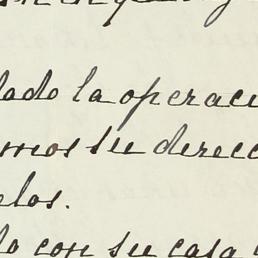 lado la operaci
mos su direcc
elos.
lo con su casa